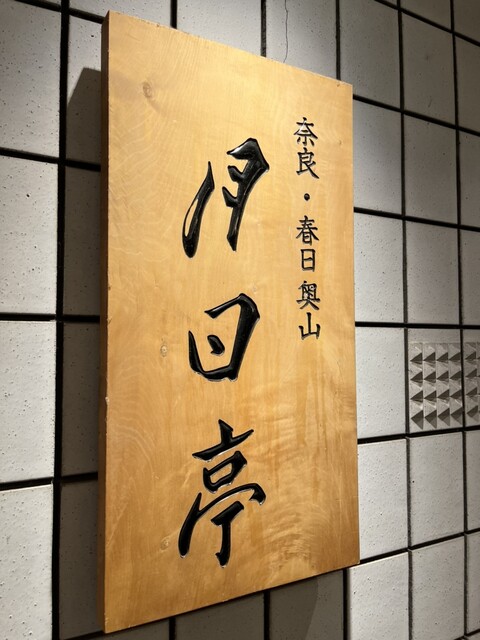 奈良・春日奥山
月日亭